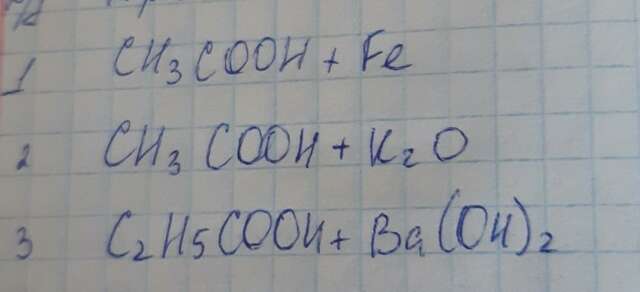 1 CH₃COOH + Fe
2 CH₃COOH + K₂O
3 C₂H₅COOH + Ba(OH)₂